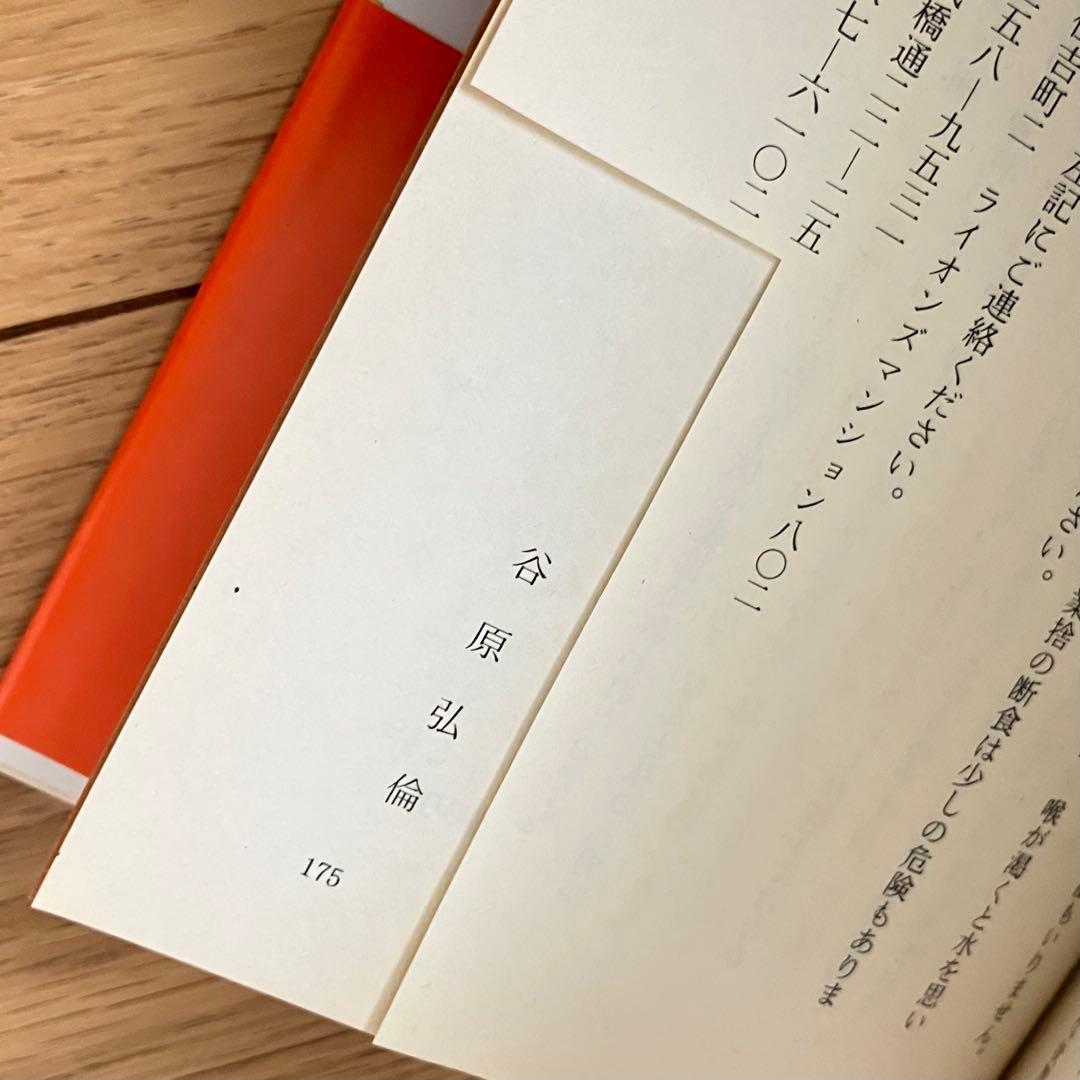 いりません。
喉が渇くと水を思い
業捨の断食は少しの危険もありま
さい。
左記にご連絡ください。
住吉町二　ライオンズマンション八〇二
五八―九五三一
橋通二二一―二五
七―六一〇二
谷原弘倫
175